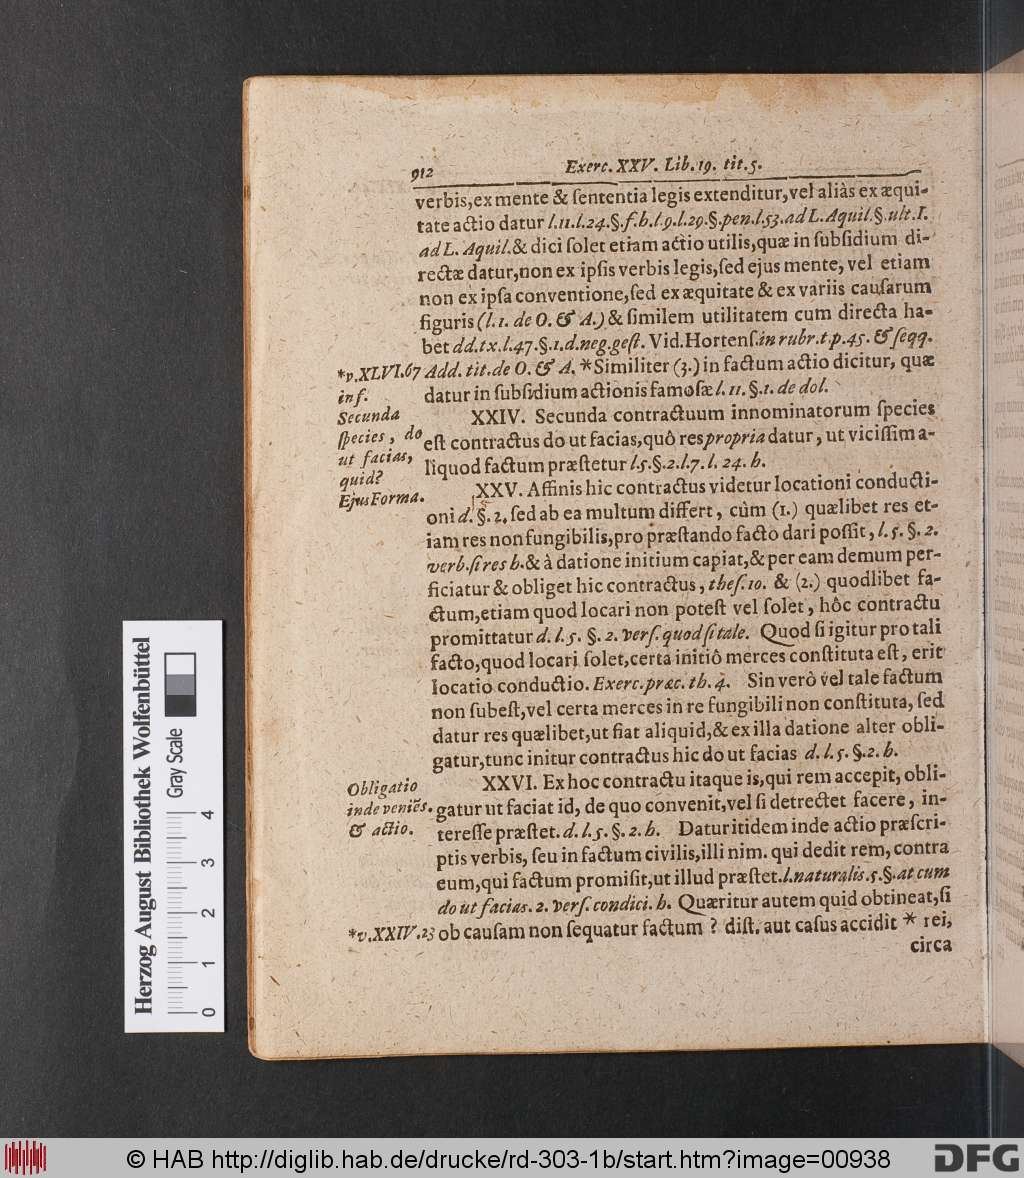 912
Exerc. XXV. Lib. 19. tit. 5.
verbis, ex mente & ſententia legis extenditur, vel aliàs ex æqui-
tate actio datur l. 11. l. 24. §. f. h. l. 9. l. 29. §. pen. l. 53. ad L. Aquil. §. ult. I.
ad L. Aquil. & dici ſolet etiam actio utilis, quæ in ſubſidium di-
rectæ datur, non ex ipſis verbis legis, ſed ejus mente, vel etiam
non ex ipſa conventione, ſed ex æquitate & ex variis cauſarum
figuris (l. 1. de O. & A.) & ſimilem utilitatem cum directa ha-
bet dd. tx. l. 47. §. 1. d. neg. geſt. Vid. Hortenſ. in rubr. t. p. 45. & ſeqq.
Add. tit. de O. & A. * Similiter (3.) in factum actio dicitur, quæ
datur in ſubſidium actionis famoſæ l. 11. §. 1. de dol.
*v. XLVI. 67
inf.
XXIV. Secunda contractuum innominatorum ſpecies
eſt contractus do ut facias, quô res propria datur, ut viciſſim a-
liquod factum præſtetur l. 5. §. 2. l. 7. l. 24. h.
Secunda
ſpecies, do
ut facias,
quid?
XXV. Affinis hic contractus videtur locationi conducti-
oni d. §. 2. ſed ab ea multum differt, cùm (1.) quælibet res et-
iam res non fungibilis, pro præſtando facto dari poſſit, l. 5. §. 2.
verb. ſi res h. & à datione initium capiat, & per eam demum per-
ficiatur & obliget hic contractus, theſ. 10. & (2.) quodlibet fa-
ctum, etiam quod locari non poteſt vel ſolet, hôc contractu
promittatur d. l. 5. §. 2. verſ. quod ſi tale. Quod ſi igitur pro tali
facto, quod locari ſolet, certa initiô merces conſtituta eſt, erit
locatio conductio. Exerc. præc. th. 4. Sin verò vel tale factum
non ſubeſt, vel certa merces in re fungibili non conſtituta, ſed
datur res quælibet, ut fiat aliquid, & ex illa datione alter obli-
gatur, tunc initur contractus hic do ut facias d. l. 5. §. 2. h.
Ejus Forma.
XXVI. Ex hoc contractu itaque is, qui rem accepit, obli-
gatur ut faciat id, de quo convenit, vel ſi detrectet facere, in-
tereſſe præſtet. d. l. 5. §. 2. h. Datur itidem inde actio præſcri-
ptis verbis, ſeu in factum civilis, illi nim. qui dedit rem, contra
eum, qui factum promiſit, ut illud præſtet. l. naturalis. 5. §. at cum
do ut facias. 2. verſ. condici. h. Quæritur autem quid obtineat, ſi
ob cauſam non ſequatur factum? diſt. aut caſus accidit * rei,
Obligatio
inde veniẽs.
& actio.
*v. XXIV. 23
circa
Herzog August Bibliothek Wolfenbüttel
Gray Scale
0 1 2 3 4
© HAB http://diglib.hab.de/drucke/rd-303-1b/start.htm?image=00938
DFG